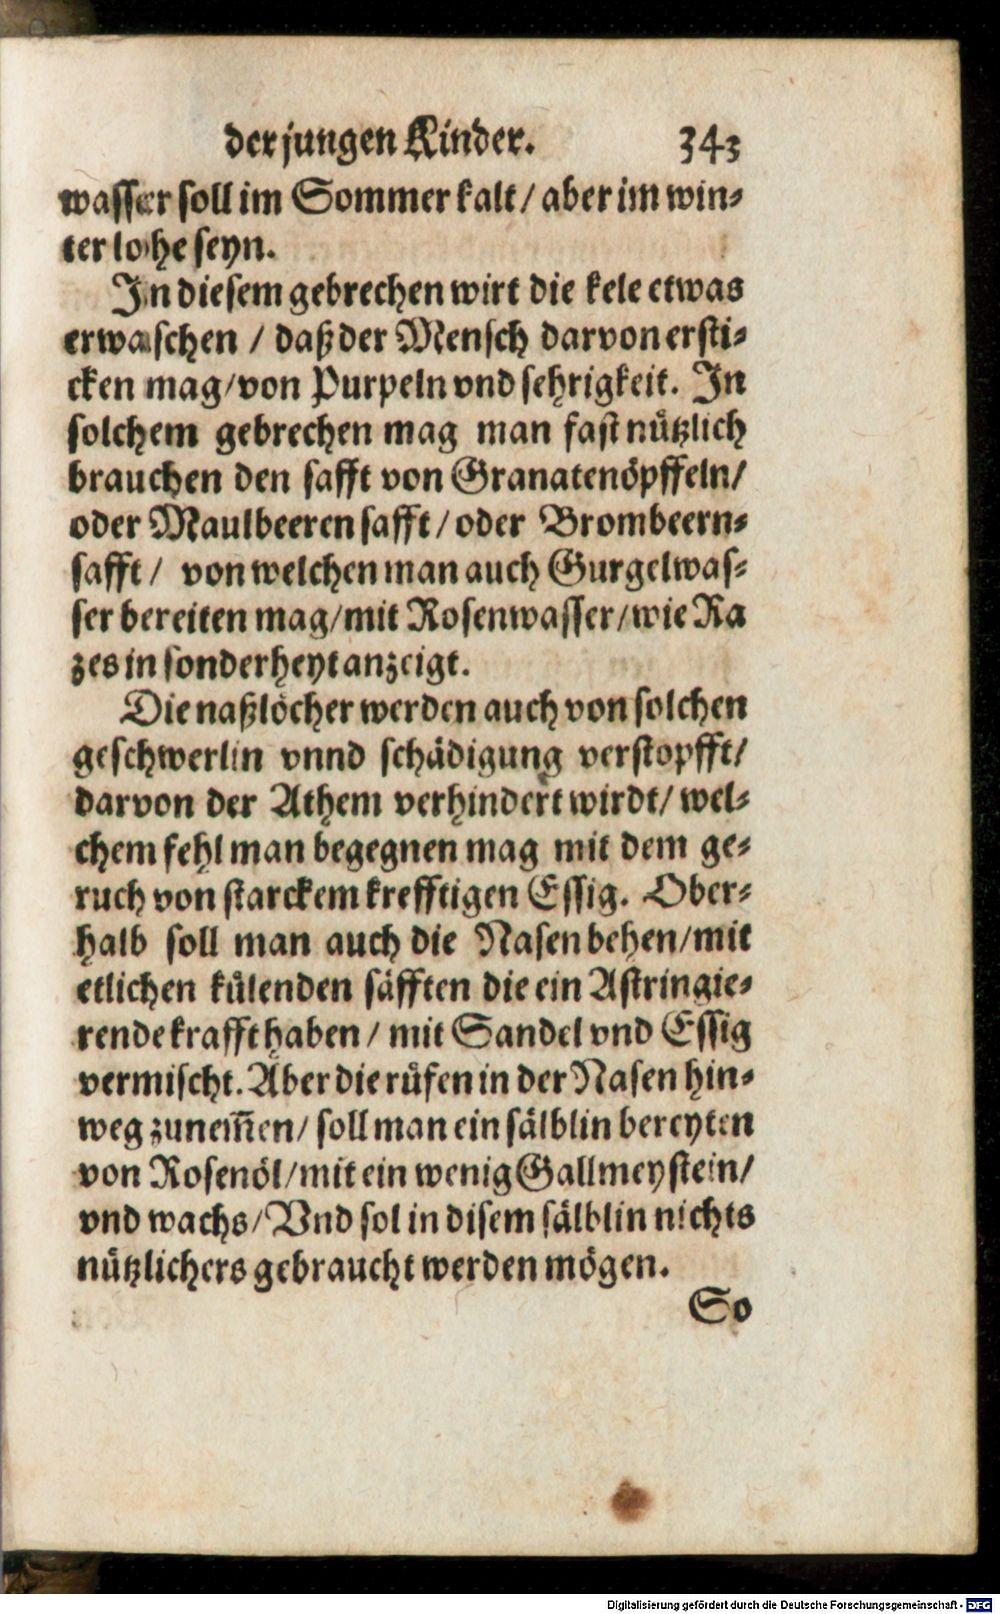 der jungen Kinder. 343
wasser soll im Sommer kalt / aber im win⸗
ter lohe seyn.
In diesem gebrechen wirt die kele etwas
erwaschen / daß der Mensch darvon ersti⸗
cken mag / von Purpeln vnd sehrigkeit. In
solchem gebrechen mag man fast nützlich
brauchen den safft von Granatenöpffeln /
oder Maulbeeren safft / oder Brombeern⸗
safft / von welchen man auch Gurgelwas⸗
ser bereiten mag / mit Rosenwasser / wie Ra
zes in sonderheyt anzeigt.
Die naßlöcher werden auch von solchen
geschwerlin vnnd schädigung verstopfft /
darvon der Athem verhindert wirdt / wel⸗
chem fehl man begegnen mag mit dem ge⸗
ruch von starckem krefftigen Essig. Ober⸗
halb soll man auch die Nasen behen / mit
etlichen külenden säfften die ein Astringie⸗
rende krafft haben / mit Sandel vnd Essig
vermischt. Aber die rüfen in der Nasen hin⸗
weg zunem̃en / soll man ein sälblin bereyten
von Rosenöl / mit ein wenig Gallmeystein /
vnd wachs / Vnd sol in disem sälblin nichts
nützlichers gebraucht werden mögen.
So
Digitalisierung gefördert durch die Deutsche Forschungsgemeinschaft - DFG